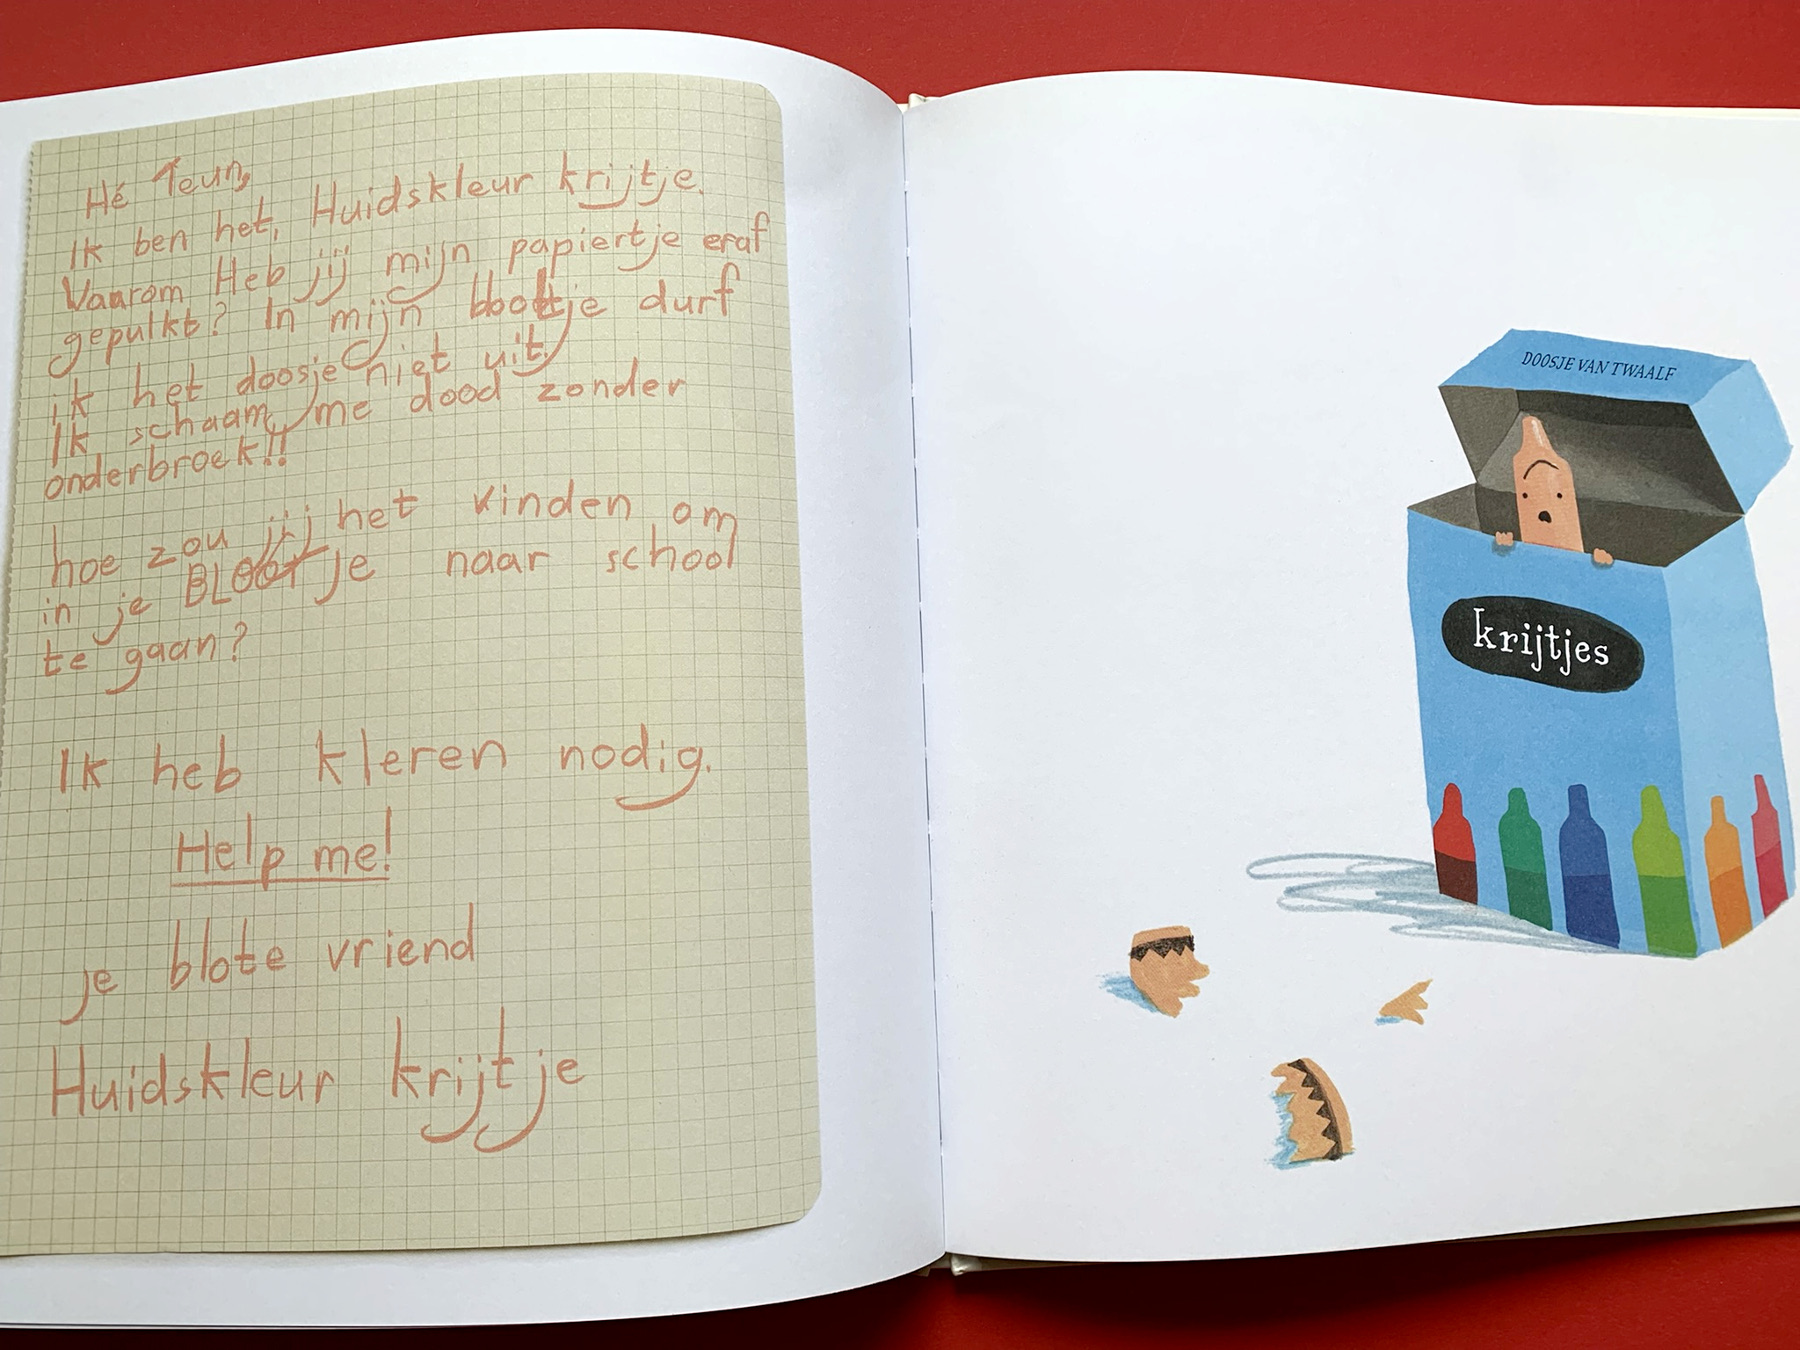 Hé Teun,
Ik ben het, Huidskleur krijtje.
Waarom Heb jij mijn papiertje eraf
gepulkt? In mijn blootje durf
ik het doosje niet uit.
Ik schaam me dood zonder
onderbroek!!
hoe zou jij het vinden om
in je BLOOTje naar school
te gaan?
Ik heb kleren nodig.
Help me!
je blote vriend
Huidskleur krijtje
DOOSJE VAN TWAALF
krijtjes